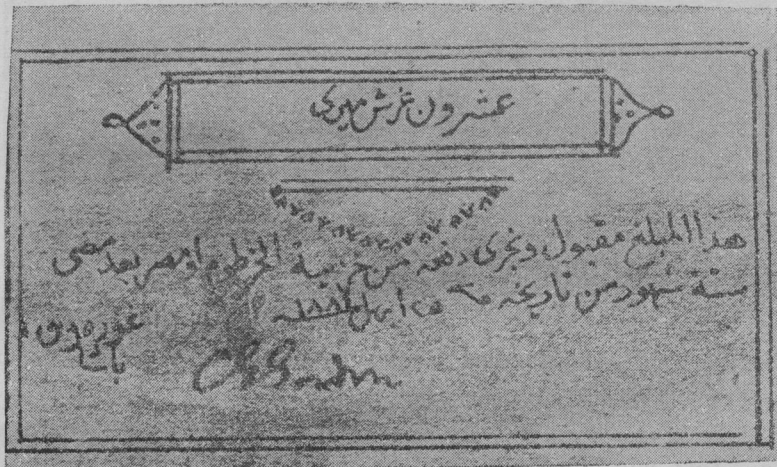 عشرون غرش ميرى
هذا المبلغ مقبول ويجرى دفعه من خزينة الخرطوم او مصر بعد مضى
ستة شهور من تاريخه ٢٥ ابريل ١٨٨٤ سنه
غوردون
باشا
C G Gordon